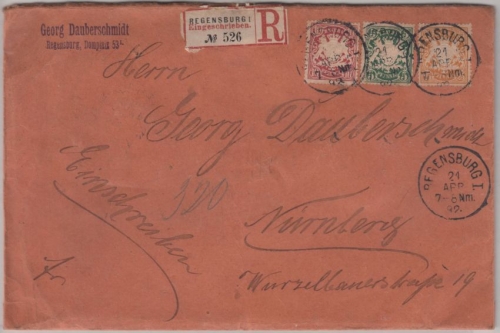 Georg Dauberschmidt
Regensburg, Domplatz
REGENSBURG I
Eingeschrieben.
№ 526
R
REGENSBURG I.
21
APR
92
Herrn
Georg Dauberschmidt
Einschreiben
320
Nürnberg
fr
Wurzelbauerstraße 19
REGENSBURG I.
21
APR
Nm.
92